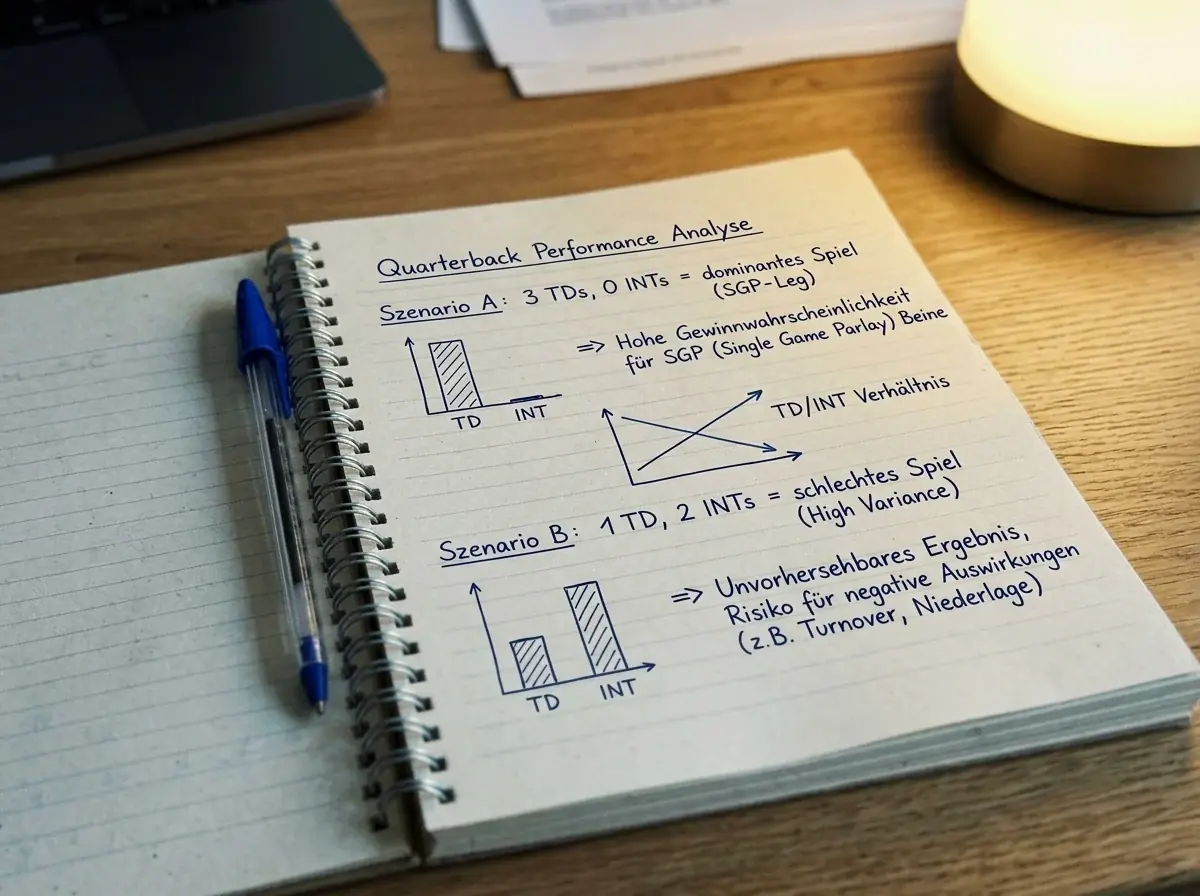 Quarterback Performance Analyse
Szenario A: 3 TDs, 0 INTs = dominantes Spiel
(SGP-Leg)
=> Hohe Gewinnwahrscheinlichkeit
für SGP (Single Game Parlay) Beine
TD INT
TD/INT Verhältnis
Szenario B: 1 TD, 2 INTs = schlechtes Spiel
(High Variance)
=> Unvorhersehbares Ergebnis,
Risiko für negative Auswirkungen
(z.B. Turnover, Niederlage)
TD INT